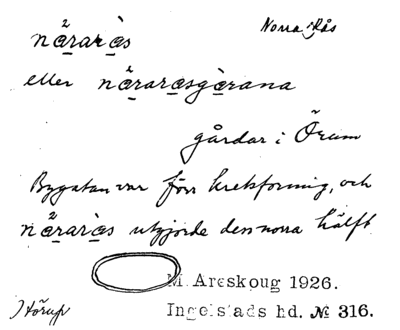 Norra Rås
näraràs
eller näraràsgàrana
gårdar i Örum
Bygatan var förr kretsformig, och
näraràs utgjorde den norra hälft.
M. Areskoug 1926.
Ingelstads hd. № 316.